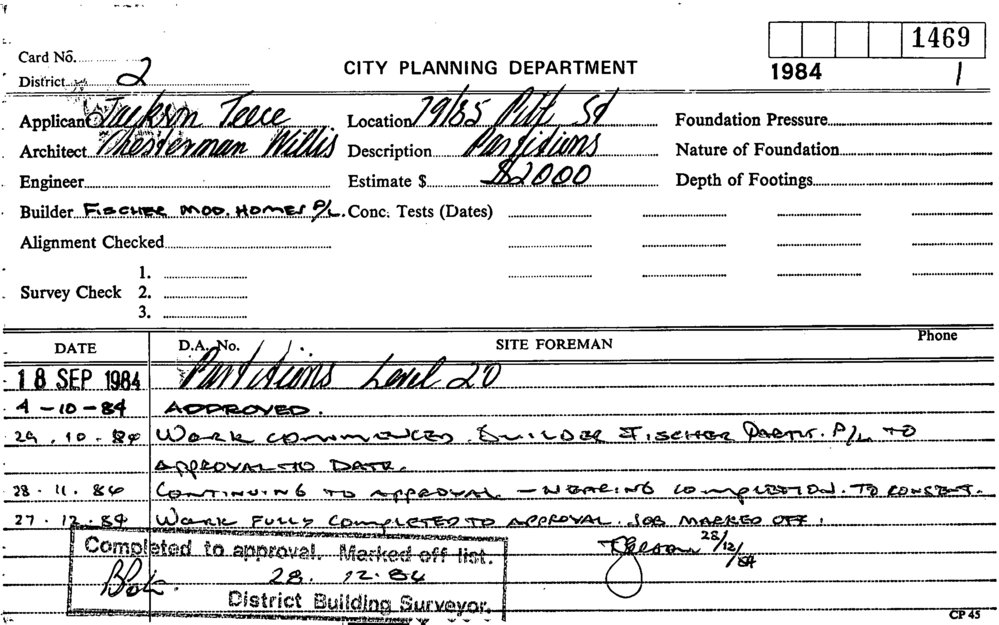 1469
Card No.
CITY PLANNING DEPARTMENT
1984 1
District 2
Applicant Jackson Teece Location 79/85 Pitt St Foundation Pressure
Architect Chesterman Willis Description Partitions Nature of Foundation
Engineer Estimate $ $2000 Depth of Footings
Builder FISCHER MOD. HOMES P/L. Conc. Tests (Dates)
Alignment Checked
1.
Survey Check 2.
3.
DATE D.A. No. / / . SITE FOREMAN Phone
18 SEP 1984 Partitions Level 20
4-10-84 APPROVED.
29.10.84 WORK COMMENCED. BUILDER FISCHER PARTIT. P/L TO
APPROVAL TO DATE.
28.11.84 CONTINUING TO APPROVAL - NEARING COMPLETION. TO CONSENT.
27.12.84 WORK FULLY COMPLETED TO APPROVAL. JOB MARKED OFF.
Completed to approval. Marked off list.
28/12/84
28. 12.84
District Building Surveyor.
CP 45